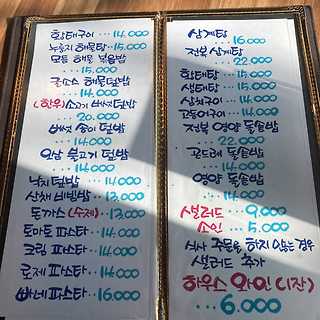 황태구이 ... 14.000
누룽지 해물탕 .. 15.000
모듬 해물 볶음밥
... 15.000
굴소스 해물덮밥
... 14.000
(한우)소고기 버섯덮밥
... 20.000
버섯 송이 덮밥
... 14.000
오삼 불고기 덮밥
... 14.000
낙지덮밥 ... 14.000
산채 비빔밥 ... 13.000
돈까스 (수제) .. 13.000
토마토 파스타 ... 14.000
크림 파스타 ... 14.000
로제 파스타 ... 14.000
빠네 파스타 ... 16.000
삼계탕
... 16.000
전복 삼계탕
... 22.000
황태탕 ... 15.000
생태탕 ... 15.000
삼치구이 ... 14.000
고등어구이 ... 14.000
전복 영양 돌솥밥
... 22.000
곤드레 돌솥밥
... 14.000
영양 돌솥밥
... 14.000
샐러드 ... 9.000
소인 ... 5.000
식사 주문을 하지 않는 경우
샐러드 추가
하우스 와인 (1잔)
... 6.000